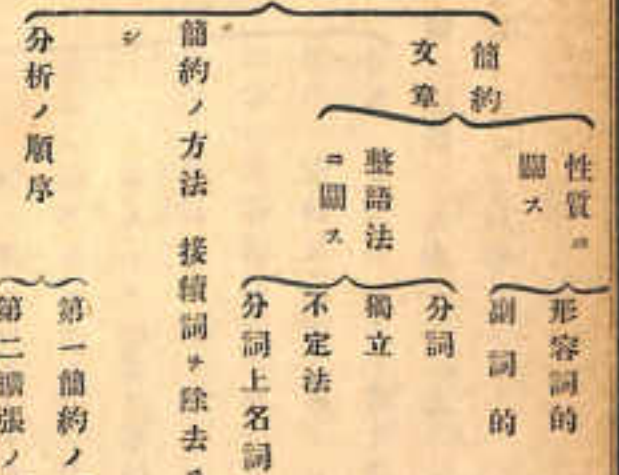 簡約
文章
性質ニ
關ス
形容詞的
副詞的
整語法
ニ關ス
分詞
獨立
不定法
分詞上名詞
簡約ノ方法 接續詞ヲ除去
シ
分析ノ順序
第一簡約ノ
第二擴張ノ